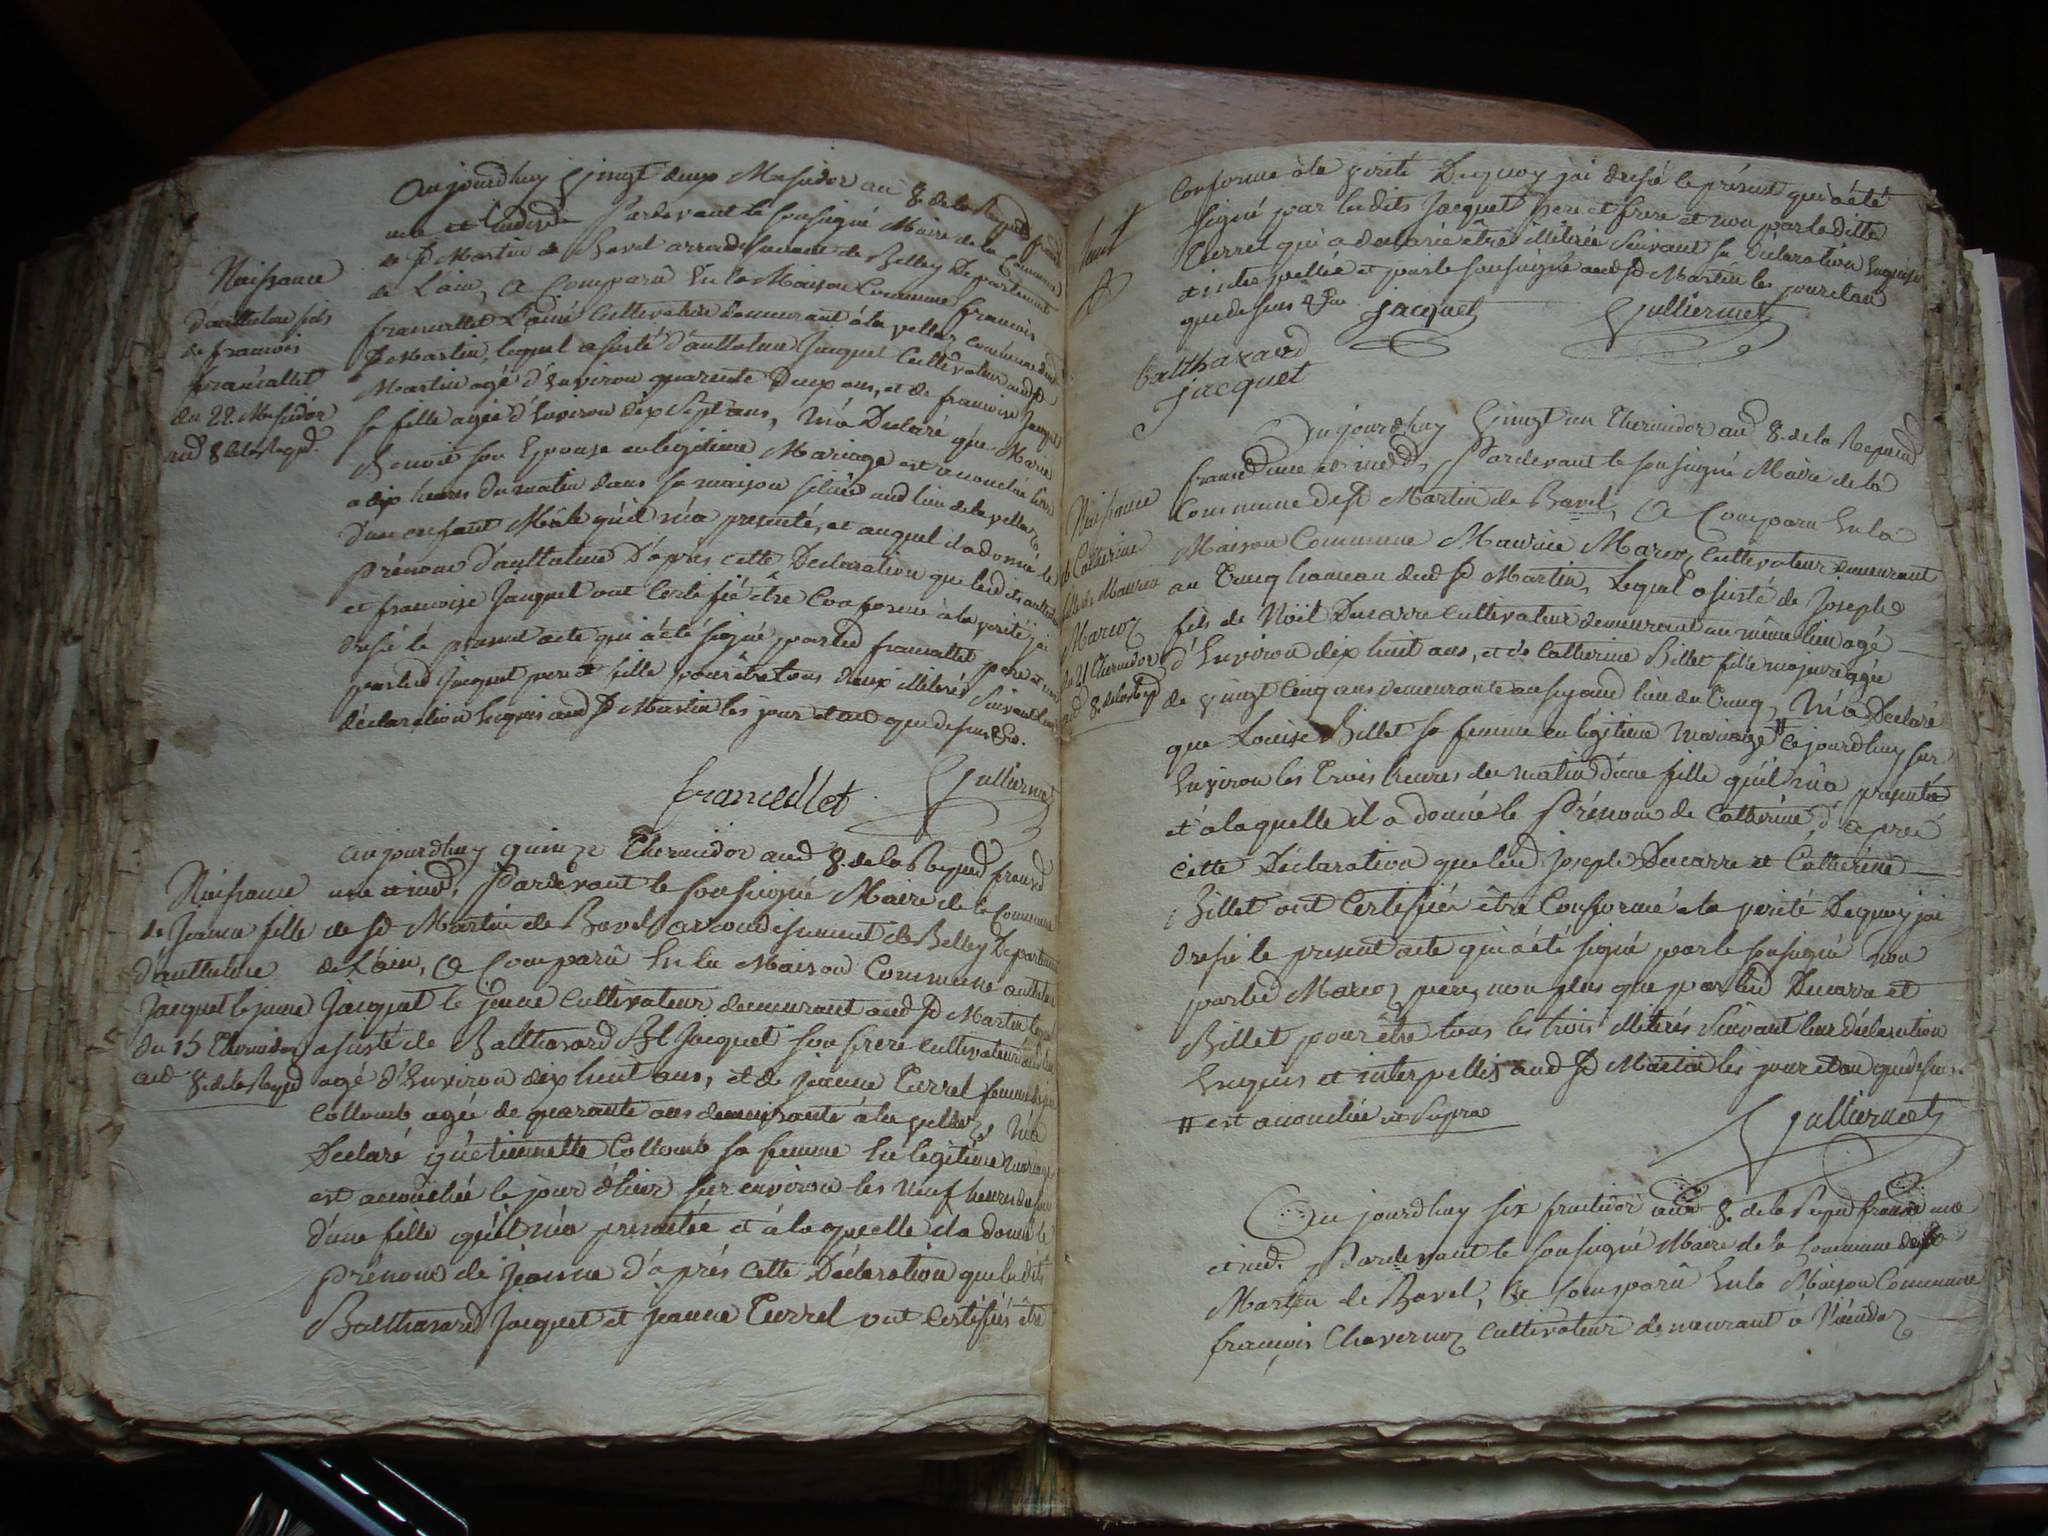 Aujourdhuy Vingt deux Messidor an 8. de la Repud franc
une et indivd Pardevant le soussigné Maire de la Commune
de St Martin de Bavel arrondissement de Belley Departement
de L'ain, a Comparu En la Maison Commune francois
francallet L'ainé Cultivateur demeurant à la vellaz commune dud
St Martin, lequel assisté d'anthelme Jacquet Cultivateur aud St
Martin agé d'Environ quarente Deux ans, et de francoise Jacquet
sa fille agée d'Environ dix Sept ans, M'a Declaré que Marie
Benoit son Epouse en legitime Mariage est accouchée
a dix heures du matin dans sa maison située aud lieu de la vellaz
d'un enfant Mâle qu'il m'a presenté, et auquel il a donné le
prénom d'anthelme D'après cette Declaration que lesd
et francoise Jacquet ont Certifié être Conforme à la verité, j'ai
dressé le present acte qui à été signé par led francallet pere et non
par led Jacquet pere et fille pour être tous deux illiterés Suivant leur
déclaration Enquis aud St Martin les jour et an que dessus
Naissance
d'anthelme fils
de francois
francallet
du 22. Messidor
and 8 de la Repd.
francallet
Gulliermet
aujourdhuy quinze Thermidor and 8. de la Repud francd
une et ind. Pardevant le soussigné Maire de la Commune
de St Martin de Bavel arrondissement de Belley Departement
de L'ain, a Comparû En la Maison Commune anthelme
Jacquet le jeune Cultivateur demeurant aud St Martin lequel
assisté de Balthazard Jacquet son frere cultivateur
agé d'Environ dix huit ans, et de Jeanne Turrel femme
Collomb agée de quarante ans demeurante à la vellaz, M'a
Declaré qu'etiennette Collomb sa femme En legitime mariage
est accouchée le jour d'hier sur environ les Neuf heures du soir
d'une fille qu'il m'a presentée et à laquelle il a donné le
prénom de Jeanne d'après cette Déclaration que lesdits
Balthazard Jacquet et Jeanne Turrel ont Certifiés être
Naissance
de Jeanne fille
d'anthelme
Jacquet le jeune
du 15 Thermidor
and 8. de la Repud
Conforme à la verité Dequoy j'ai dressé le présent qui à été
signé par lesdits Jacquet pere et frere et non par laditte
Turrel qui a declarée être illiterée Suivant sa Déclaration Enquise
et interpellée et par le soussigné aud St Martin les jour et an
que dessus Jacquet Gulliermet
balthazard
jacquet
Aujourdhuy Vingt un Thermidor and 8. de la Repud
francd une et indd, Pardevant le soussigné Maire de la
Commune de St Martin de Bavel, a Comparu En la
Maison Commune Maurice Marcoz cultivateur demeurant
au Trucq hameau dud St Martin, Lequel assisté de Joseph
fils de Noël Ducarre cultivateur demeurant au même lieu agé
d'Environ dix huit ans, et de Catherine Billet fille majeure agée
de vingt Cinq ans demeurante aussy aud lieu du Trucq, M'a Declaré
que Louise Billet sa femme en légitime Mariage # cejourdhuy sur
Environ les Trois heures du matin d'une fille qu'il m'a presentée
et à laquelle il a donné le Prénom de Catherine, d'après
cette Déclaration que led Joseph Ducarre et Catherine
Billet ont Certifiés être Conforme à la verité Dequoy j'ai
dressé le present acte qui a été signé par le soussigné non
par led Marcoz pere, non plus que par led Ducarre et
Billet pour être tous les trois illiterés Suivant leur déclaration
Enquis et interpellés aud St Martin les jour et an que dessus.
# est accouchée ut Supra
Gulliermet
Naissance
de Catherine
fille de Maurice
Marcoz
du 21 Thermidor
and 8. de la Repd
Aujourdhuy six fructidor and 8. de la Repud francd une
et ind. Pardevant le soussigné Maire de la Commune de St
Martin de Bavel, a Comparû En la Maison Commune
françois Chavernoz cultivateur demeurant à